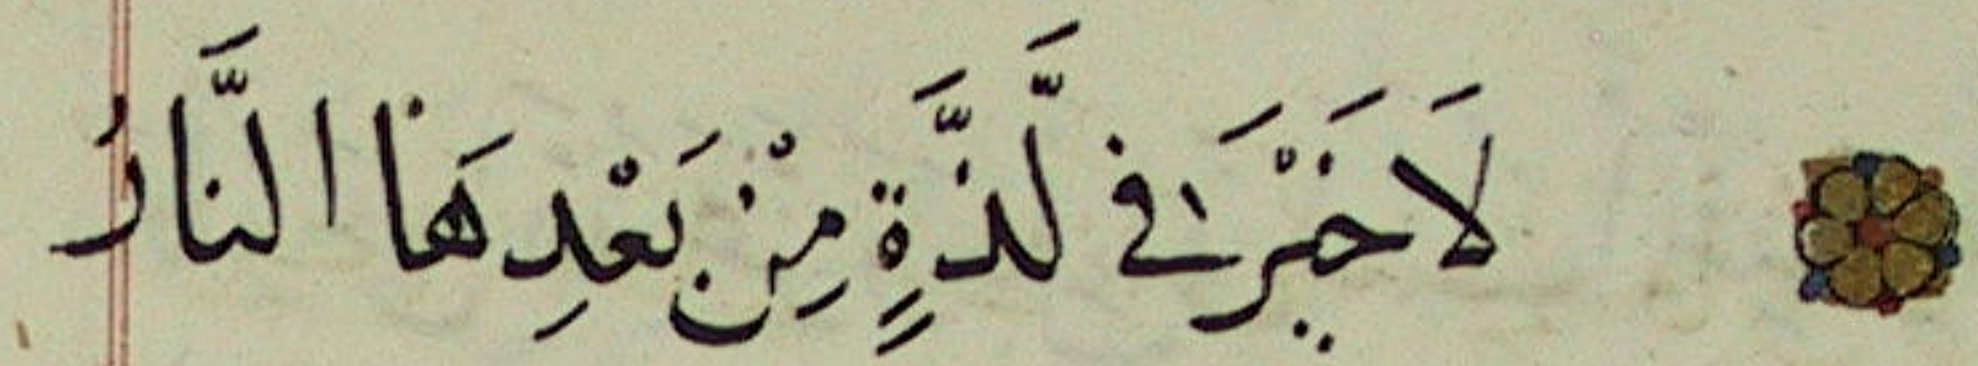 لَا خَيْرَ فِي لَّذَّةٍ مِنْ بَعْدِهَا النَّارُ